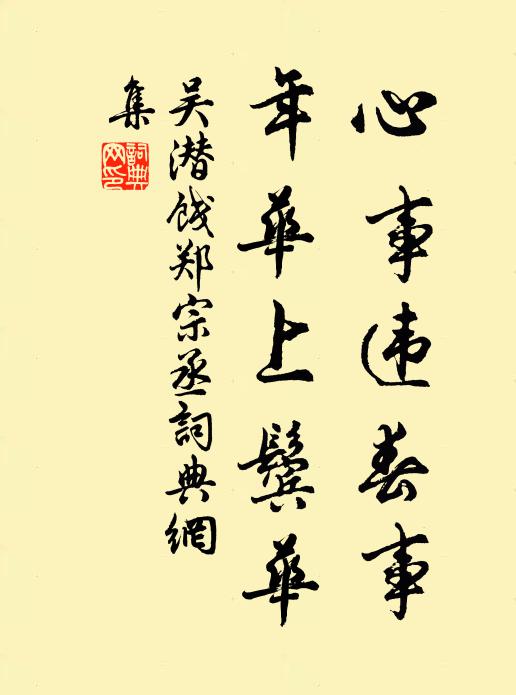 心事违春事
年華上鬓華
吴潜饯郑宗丞詞典網
集
詞典网印